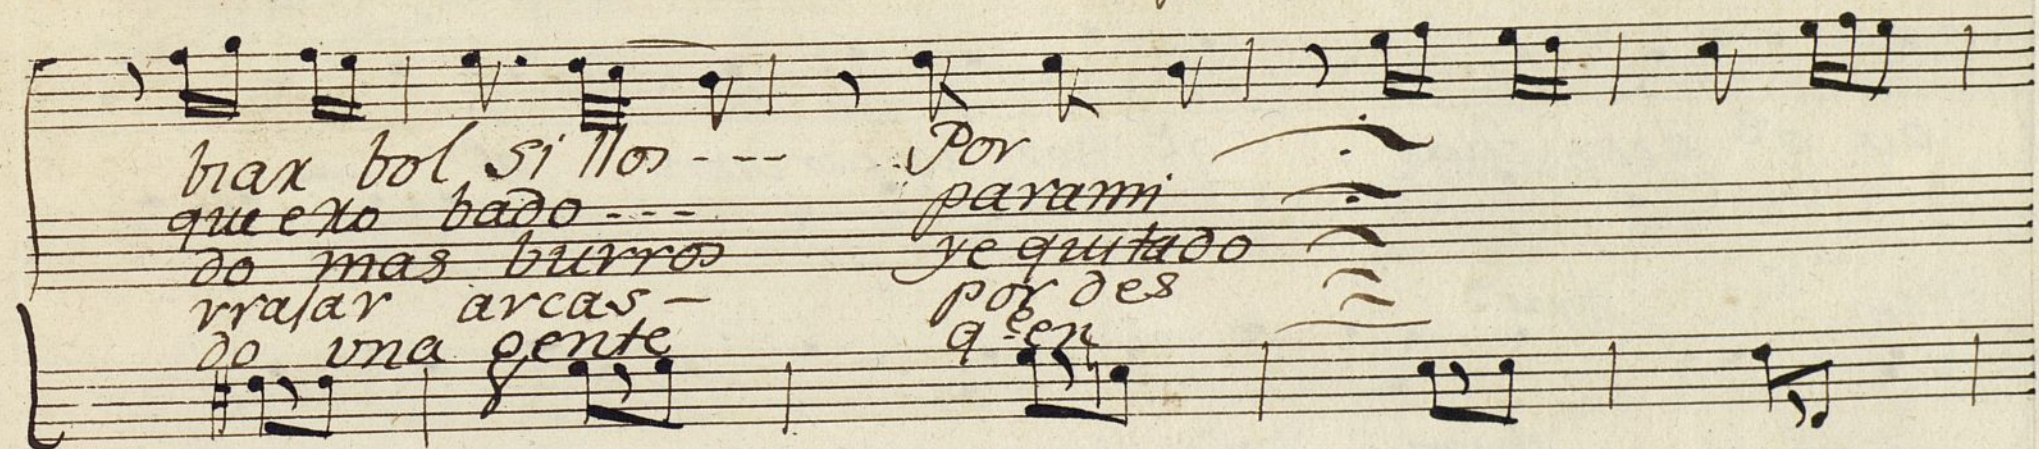 brar bol si llos --- Por
que e Ro bado --- para mi
do mas burros ye quitado
rrajar arcas - por des
do una gente q.e en